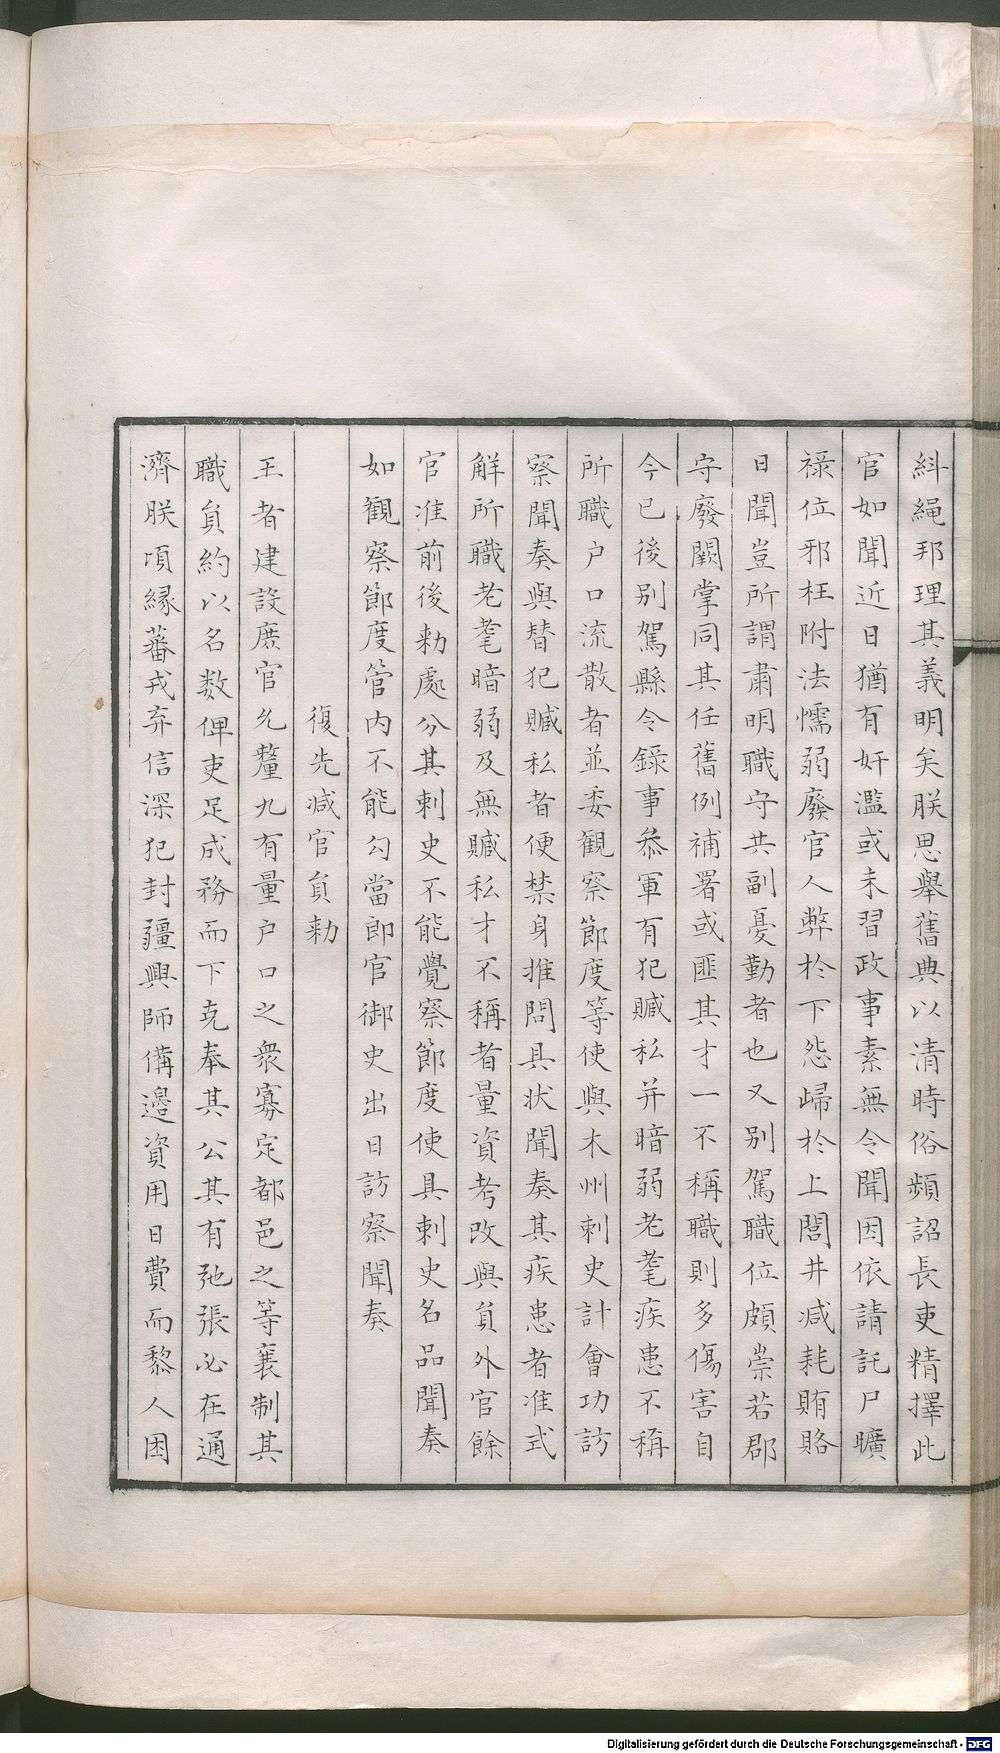 糾繩邦理其義明矣朕思舉舊典以清時俗頻詔長吏精擇此
官如聞近日猶有奸濫或未習政事素無令聞因依請託尸曠
祿位邪枉附法懦弱廢官人弊於下怨歸於上閭井減耗賄賂
日聞豈所謂肅明職守共副憂勤者也又別駕職位頗崇若郡
守廢闕掌同其任舊例補署或匪其才一不稱職則多傷害自
今已後別駕縣令錄事叅軍有犯贓私并暗弱老耄疾患不稱
所職户口流散者並委觀察節度等使與木州刺史計會功訪
察聞奏與替犯贓私者便禁身推問具状聞奏其疾患者准式
解所職老耄暗弱及無贓私才不稱者量資考改與貟外官餘
官准前後勑處分其刺史不能覺察節度使具刺史名品聞奏
如觀察節度管内不能勾當郎官御史出日訪察聞奏
復先減官貟勑
王者建設庶官允釐九有量户口之衆寡定都邑之等衰制其
職貟約以名数俾吏足成務而下克奉其公其有弛張必在通
濟朕頃緣蕃戎弃信深犯封疆興師備邊資用日費而黎人困
Digitalisierung gefördert durch die Deutsche Forschungsgemeinschaft - DFG